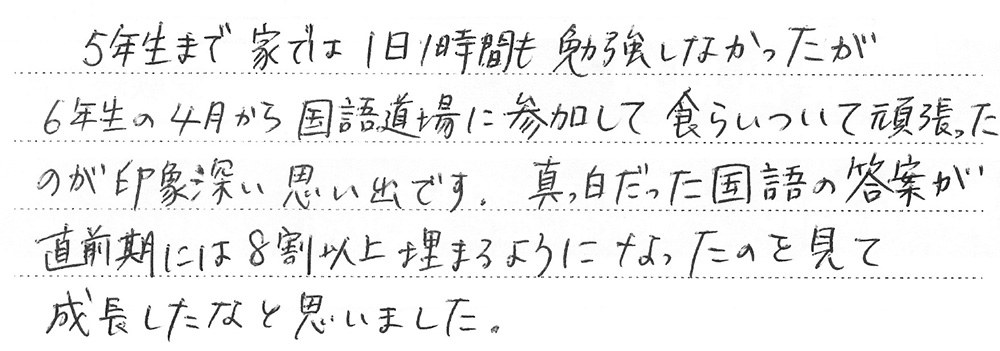 5年生まで家では1日1時間も勉強しなかったが
6年生の4月から国語道場に参加して食らいついて頑張った
のが印象深い思い出です。真っ白だった国語の答案が
直前期には8割以上埋まるようになったのを見て
成長したなと思いました。